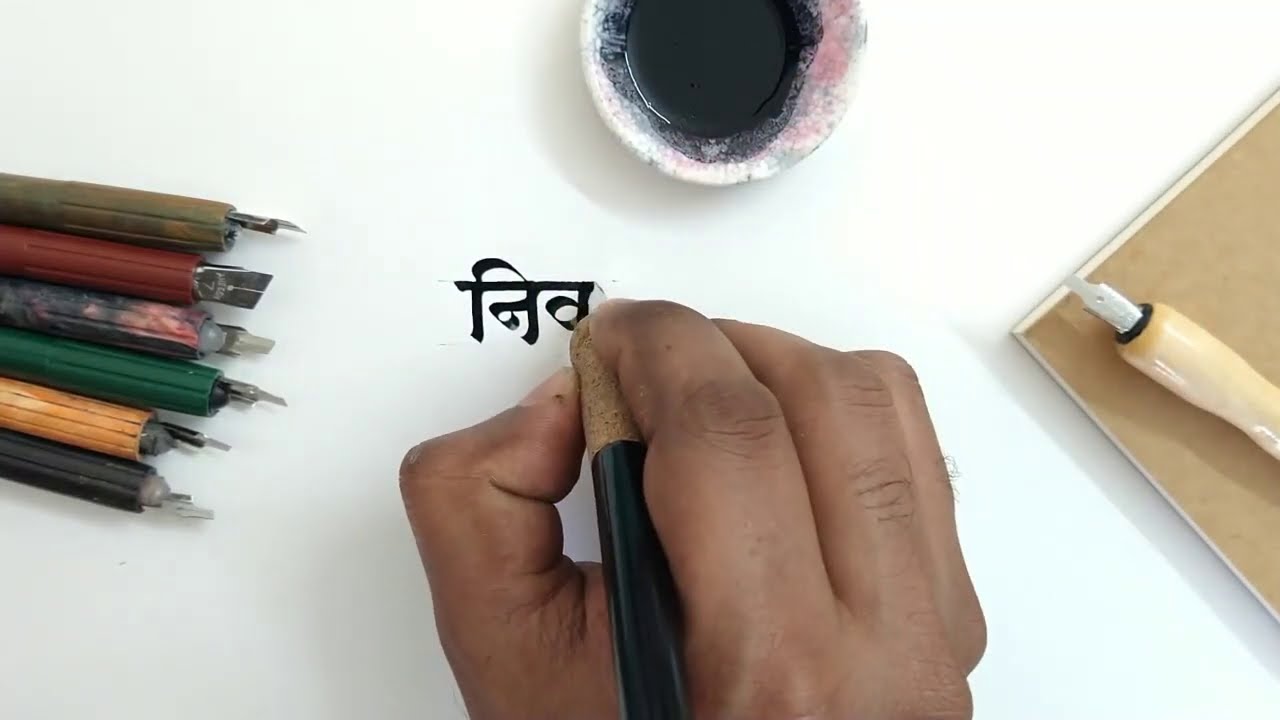 निव